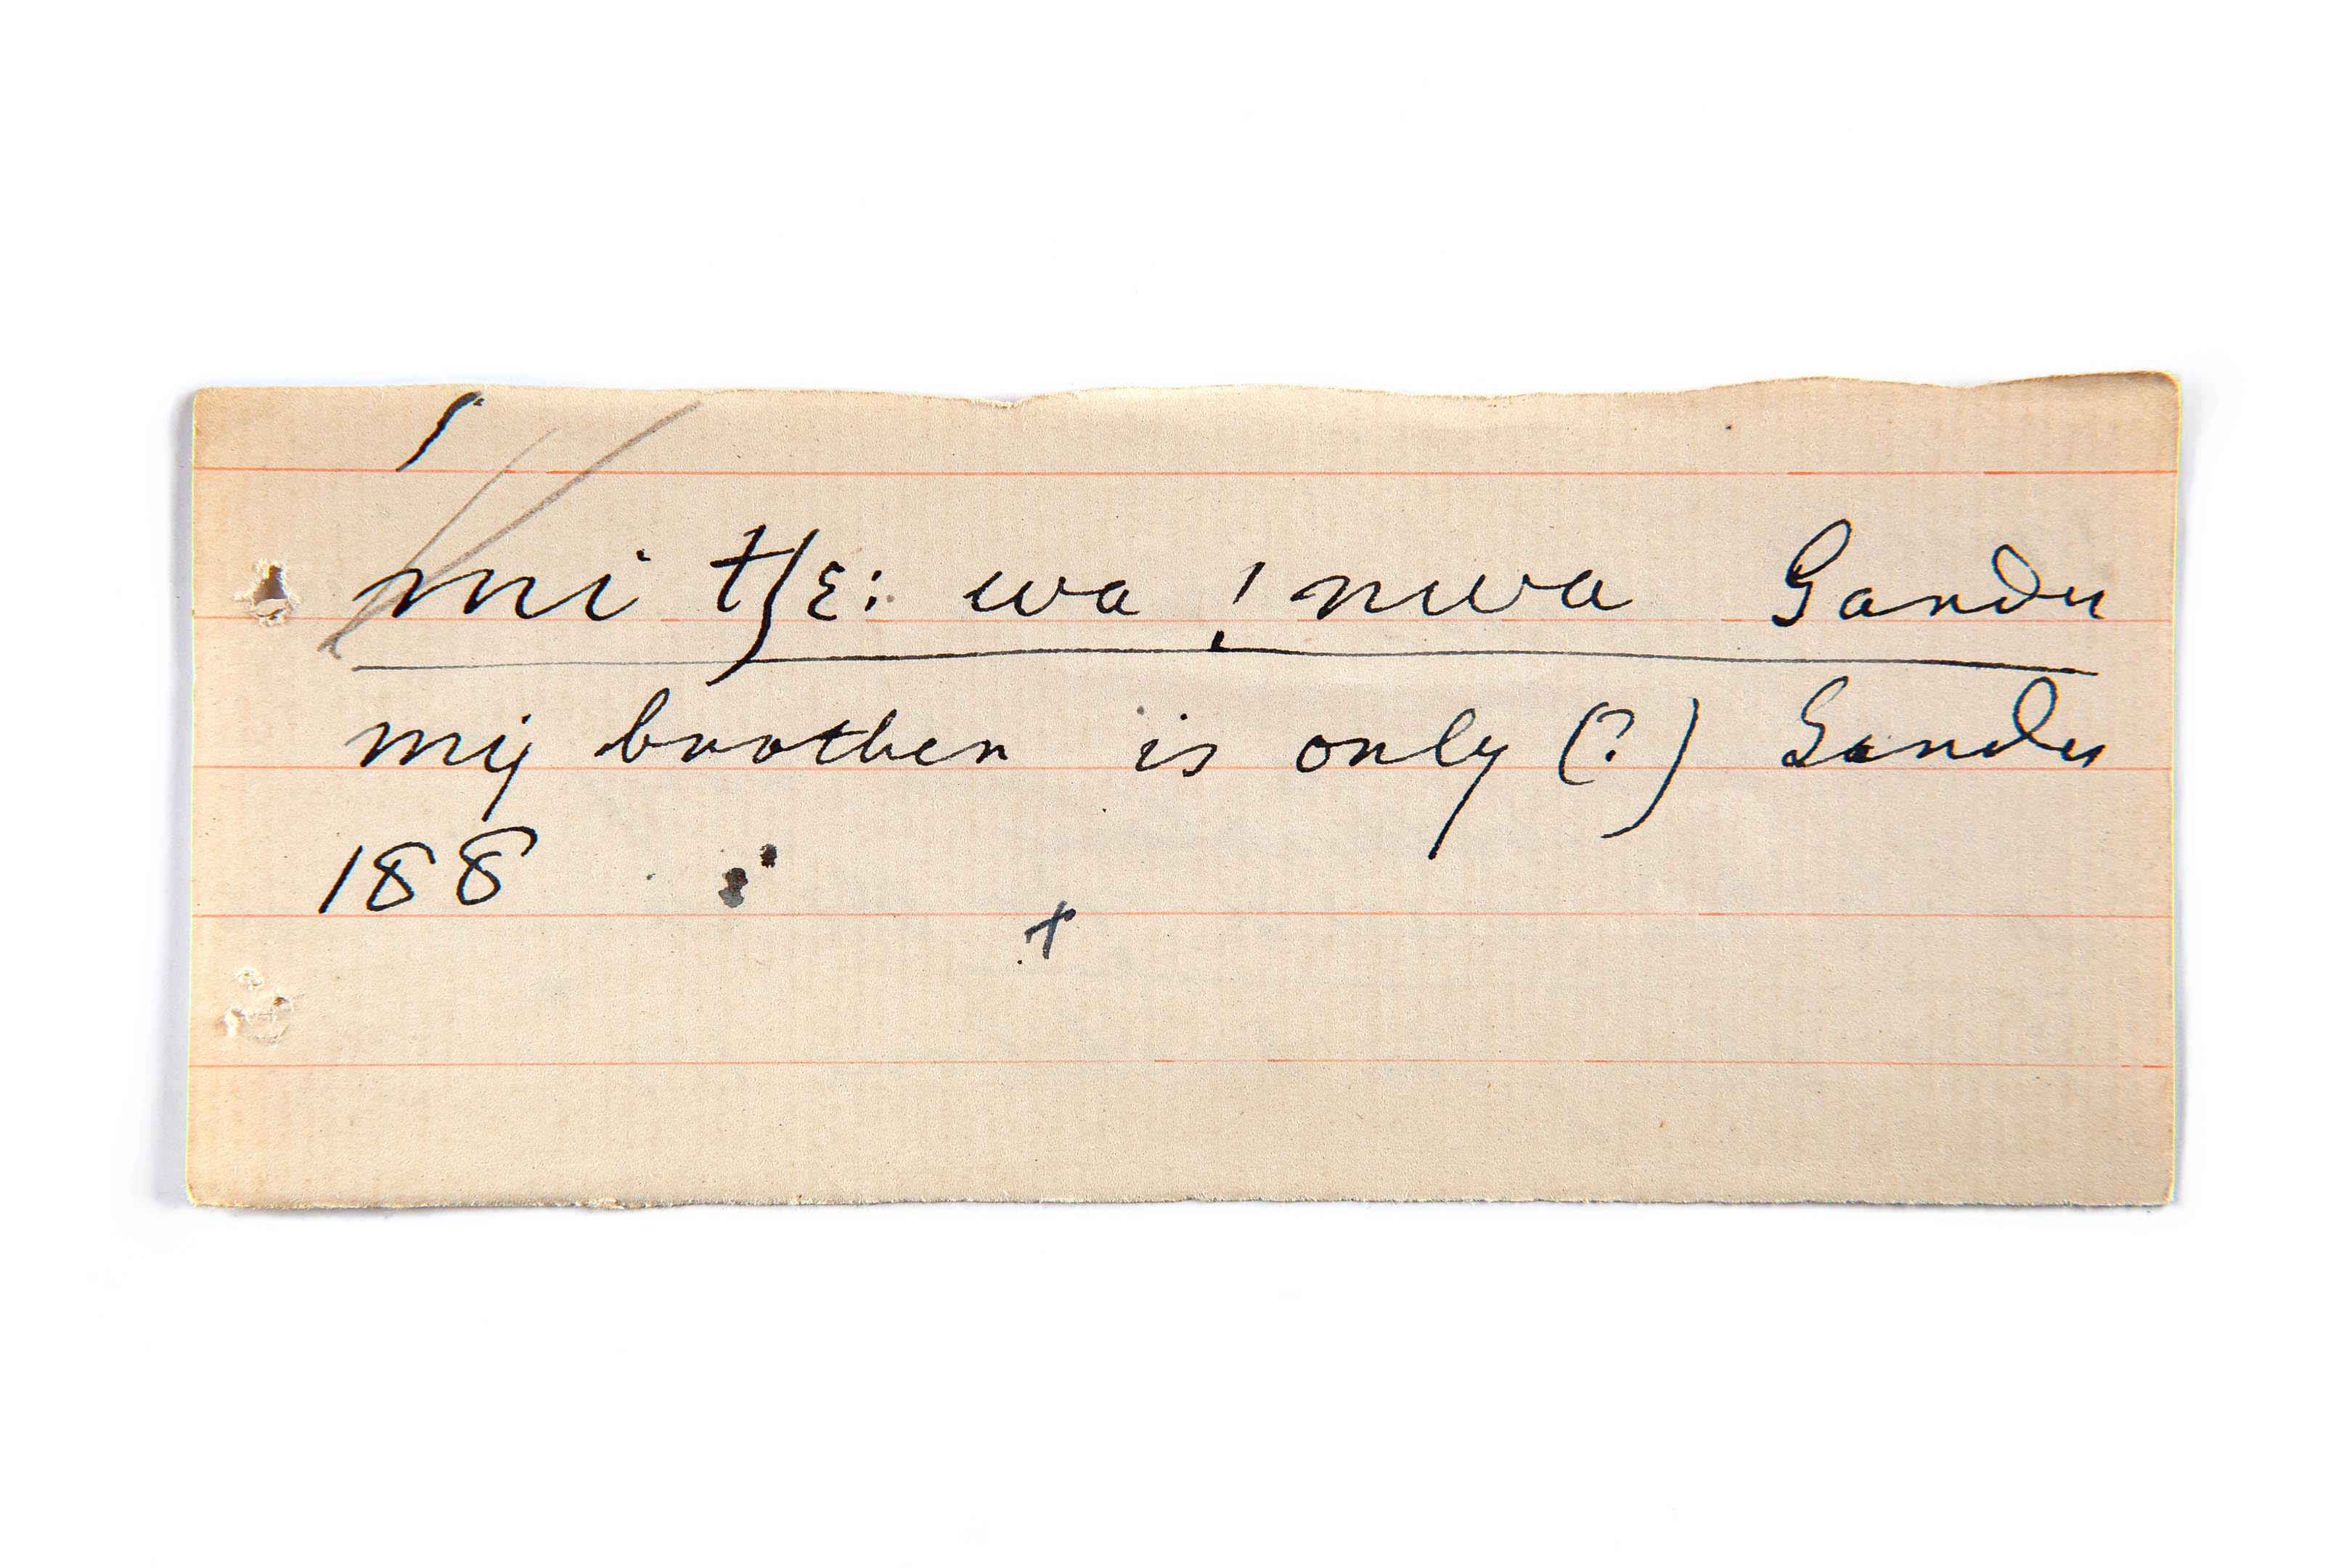 mi tʃɛ: wa ˌ'nwa Gandu
my brother is only (?) Gandu
188
+